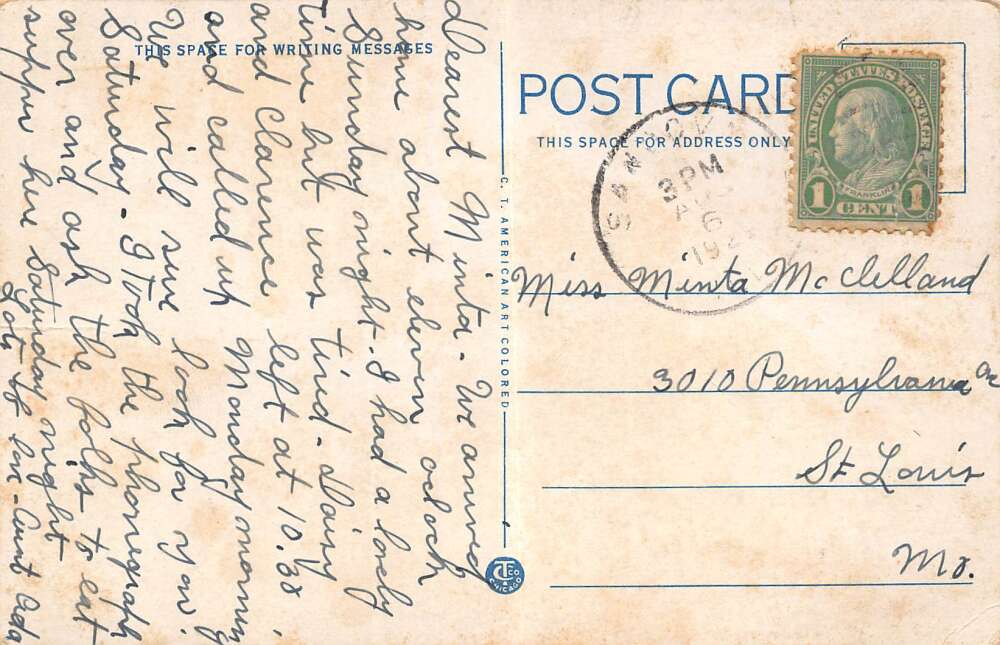 THIS SPACE FOR WRITING MESSAGES
Dearest Minta - We arrived
home about eleven oclock
Sunday night. I had a lovely
time but was tired - Daisy
and Clarence left at 10.30
and called up Monday morning
We will sure look for you
Saturday - I took the phonegraph
over and ask the folks to eat
supper here Saturday night
Lots of love - Aunt Ada
C. T. AMERICAN ART COLORED
CT CO CHICAGO
POST CARD
THIS SPACE FOR ADDRESS ONLY
3 PM
6
UNITED STATES POSTAGE
FRANKLIN
1 CENT 1
Miss Minta McClelland
3010 Pennsylvania Ave
St Louis
Mo.